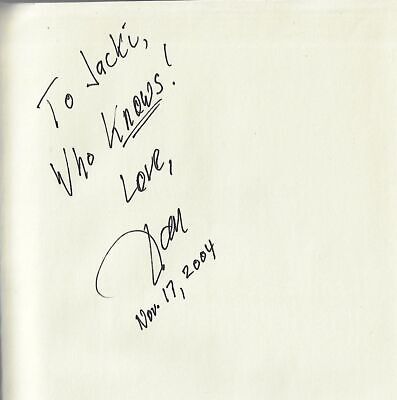 To Jacki,
Who Knows!
Love,
Nov. 17, 2004